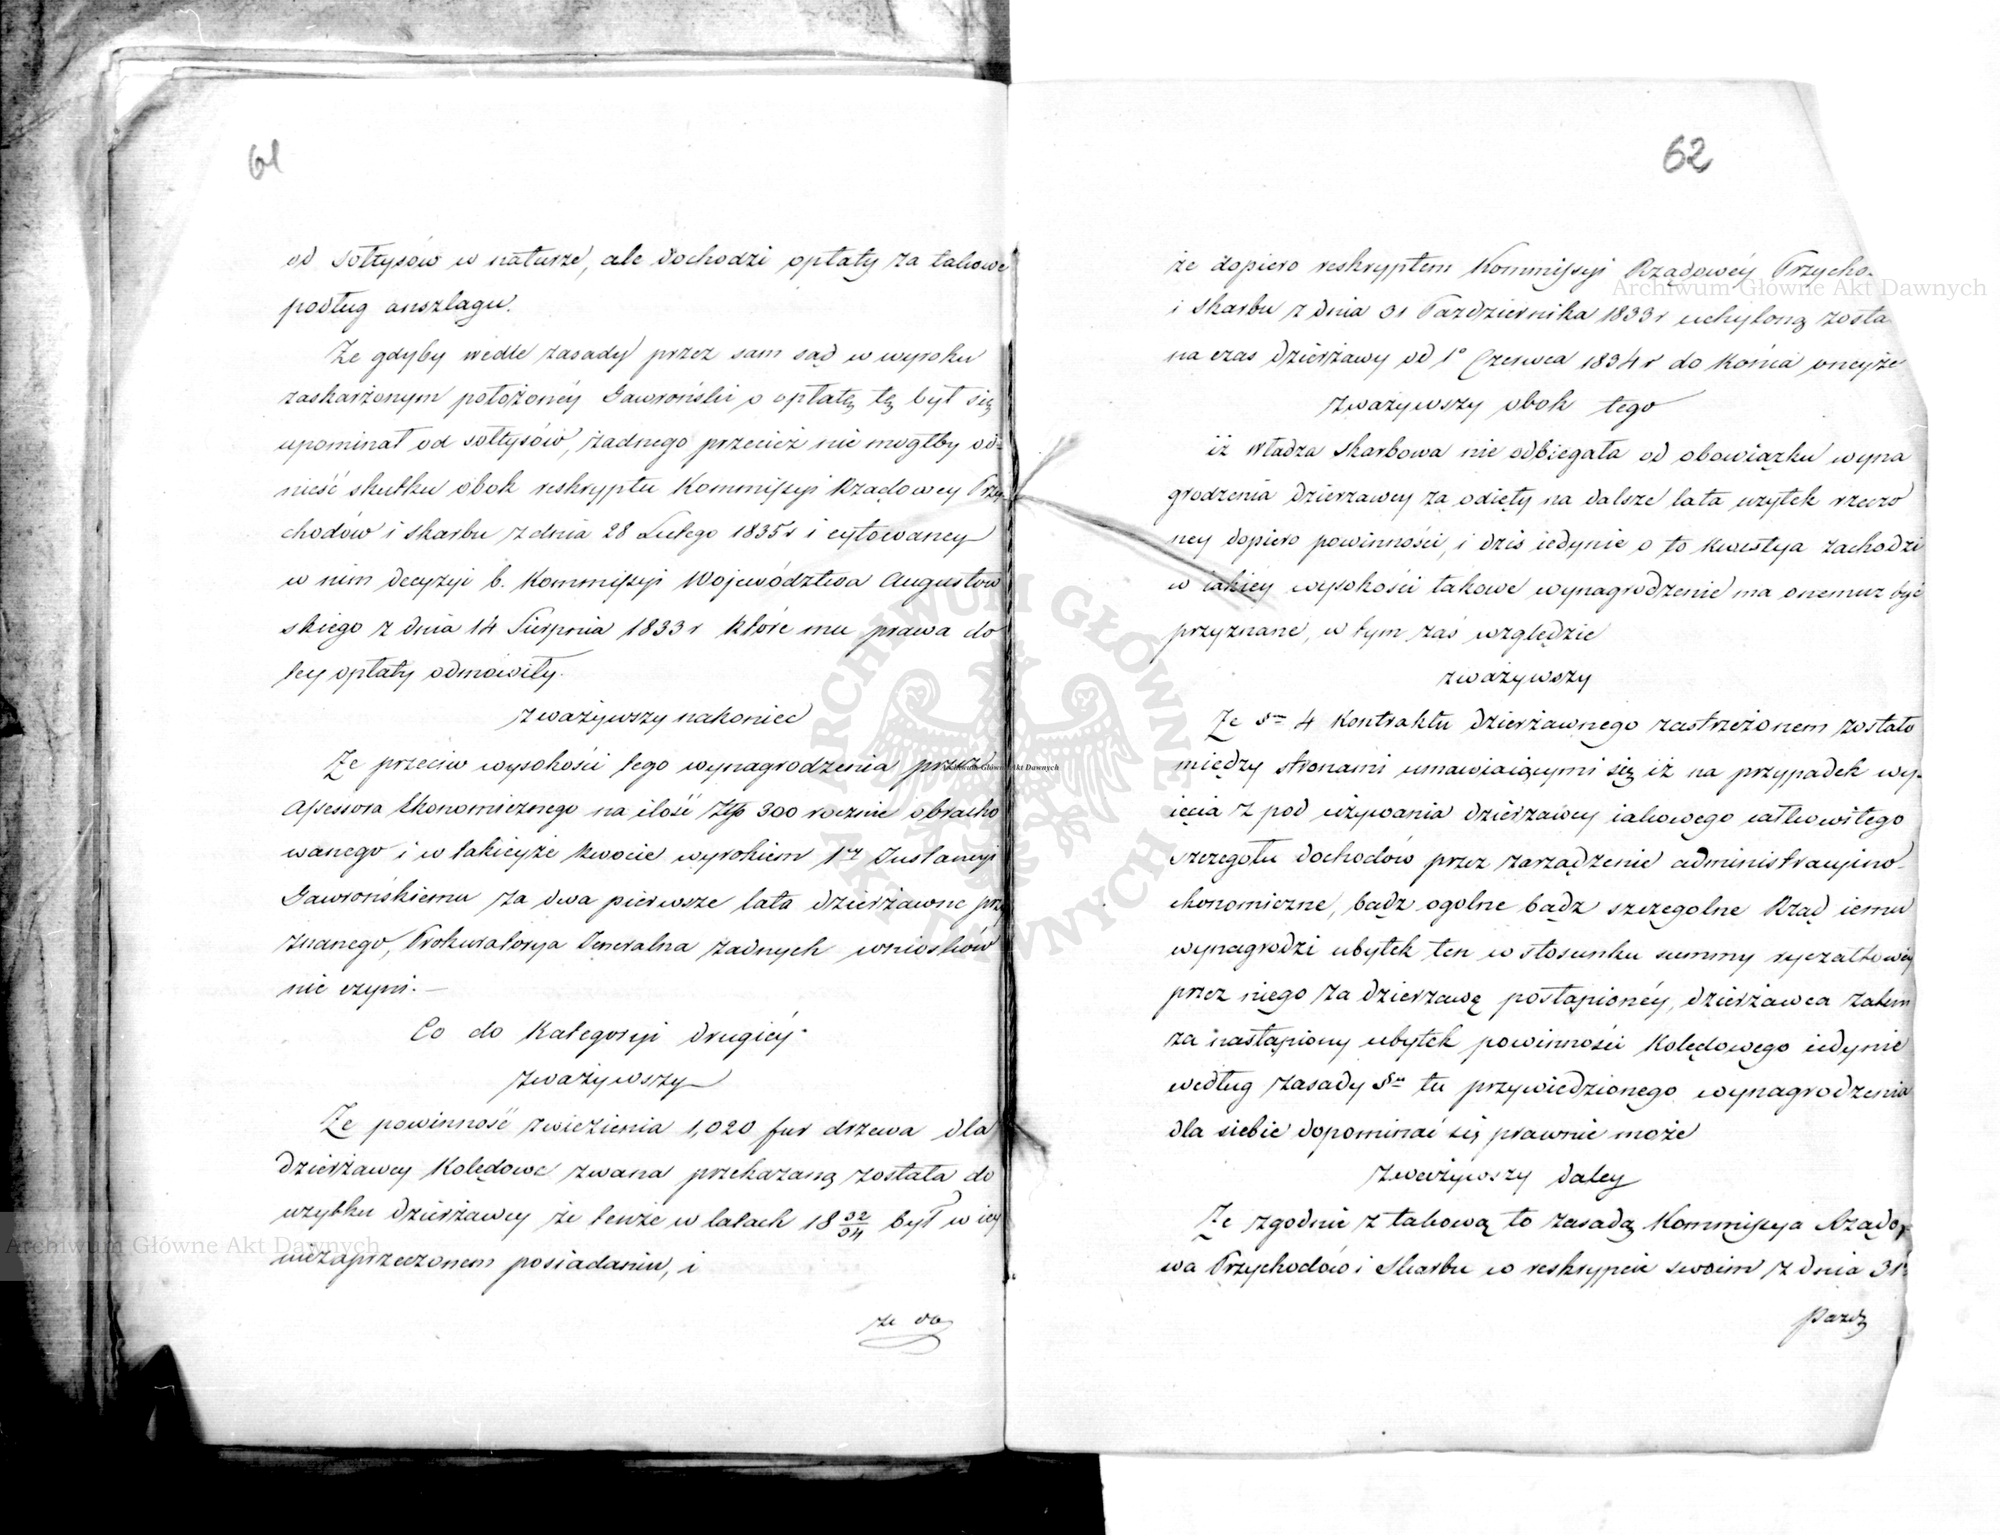 61
od sołtysów w naturze, ale dochodzi opłaty za takowe
podług anszlagu.
Że gdyby wedle zasady przez sam sąd w wyroku
zaskarżonym położonéy Gawroński o opłatę tę był się
upominał od sołtysów, żadnego przecież nie mógłby od=
nieść skutku obok reskryptu Kommissyi Rządowey Przy-
chodów i skarbu z dnia 28 Lutego 1835 r i cytowaney
w nim decyzyi b. Kommissyi Województwa Augustow
skiego z dnia 14 Sierpnia 1833 r które mu prawa do
tey opłaty odmówiły.
zważywszy nakoniec
Że przeciw wysokości tego wynagrodzenia przez
Assessora Ekonomicznego na ilość Złp 300 rocznie obracho
wanego i w takieyże kwocie wyrokiem 1ey Instancyi
Gawrońskiemu za dwa pierwsze lata dzierżawne przy
znanego, Prokuratorya Jeneralna żadnych wniosków
nie czyni. —
Co do Kategoryi drugiéy.
zważywszy
Że powinność zwiezienia 1,020 fur drzewa dla
dzierżawcy Kolędowe zwana przekazaną została do
użytku dzierżawcy że tenże w latach 18 32/34 był w iey
niezaprzeczonem posiadaniu, i
że do
62
że dopiero reskryptem Kommissyi Rządowéy Przycho-
i Skarbu z dnia 31 Października 1833 r uchyloną zosta
na czas dzierżawy od 1° Czerwca 1834 r do końca oneyże
zważywszy obok tego
iż Władza Skarbowa nie odbiegała od obowiązku wyna
grodzenia dzierżawcy za odięty na dalsze lata użytek rzeczo
ney dopiero powinności, i dziś iedynie o to kwestya zachodzi
w iakiey wysokości takowe wynagrodzenie ma onemuż być
przyznane, w tym zaś względzie
zważywszy
Że §em 4 Kontraktu dzierżawnego zastrzeżonem zostało
między stronami umawiaiącymi się iż na przypadek wy-
ięcia z pod używania dzierżawcy iakowego całkowitego
szczegółu dochodów przez zarządzenie administracyino-
ekonomiczne, bądź ogólne bądź szczególne Rząd iemu
wynagrodzi ubytek ten w stosunku summy ryczałtowéy
przez niego za dzierżawę postąpionéy, dzierżawca zatem
za nastąpiony ubytek powinności Kolędowego iedynie
według zasady §u tu przywiedzionego wynagrodzenia
dla siebie dopominać się prawnie może
zważywszy daley
Że zgodnie z takową to zasadą Kommissya Rządo-
wa Przychodów i Skarbu w reskrypcie swoim z dnia 31
Paźdz
Archiwum Główne Akt Dawnych
Archiwum Główne Akt Dawnych
Archiwum Główne Akt Dawnych
ARCHIWUM GŁÓWNE AKT DAWNYCH